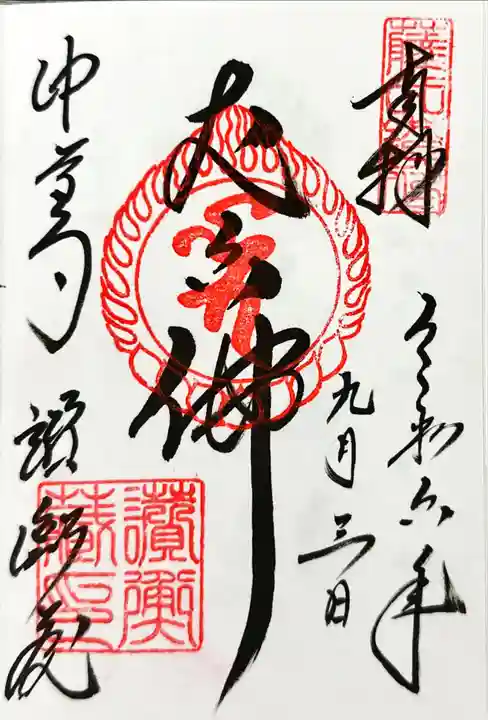 奉拝
令和六年
九月三日
丈六佛
中尊寺 讃衡蔵
讃衡
蔵印